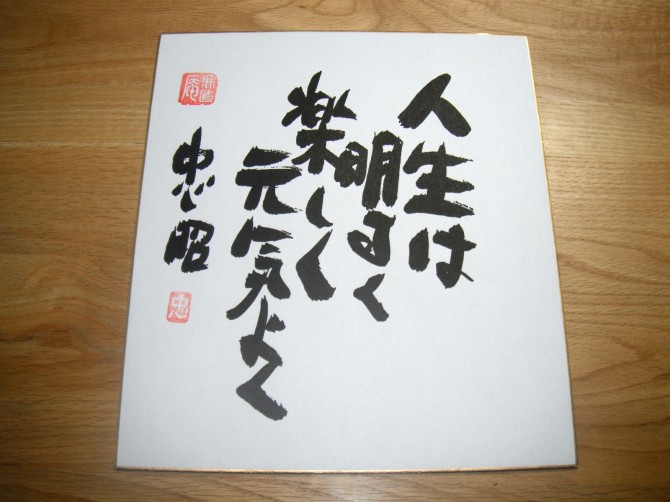 人生は
明るく
楽しく
元気よく
忠昭
忠